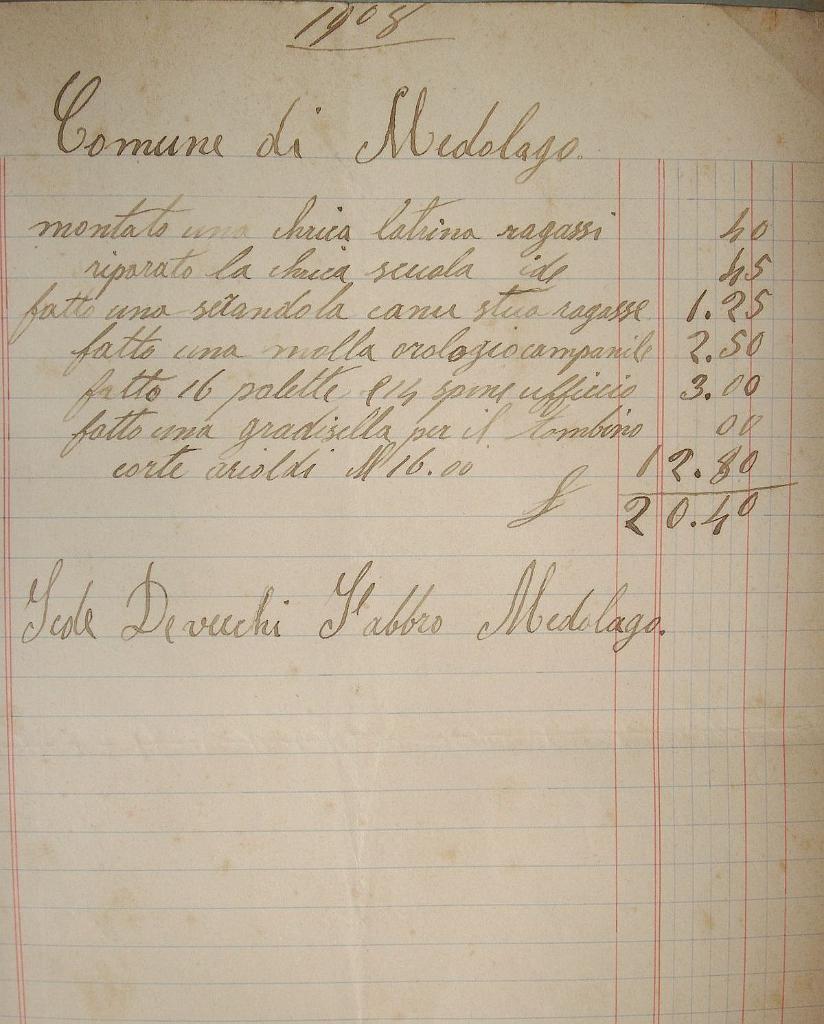 1908
Comune di Medolago.
montato una chrica latrina ragassi 40
riparato la chrica scuola ide 45
fatto una serandola canu stua ragasse 1.25
fatto una molla orologio campanile 2.50
fatto 16 palette e 14 spine ufficcio 3.00
fatto una gradisella per il tombino 00
corte arioldi M 16.00 12.80
£ 20.40
Devecchi Fabbro Medolago.